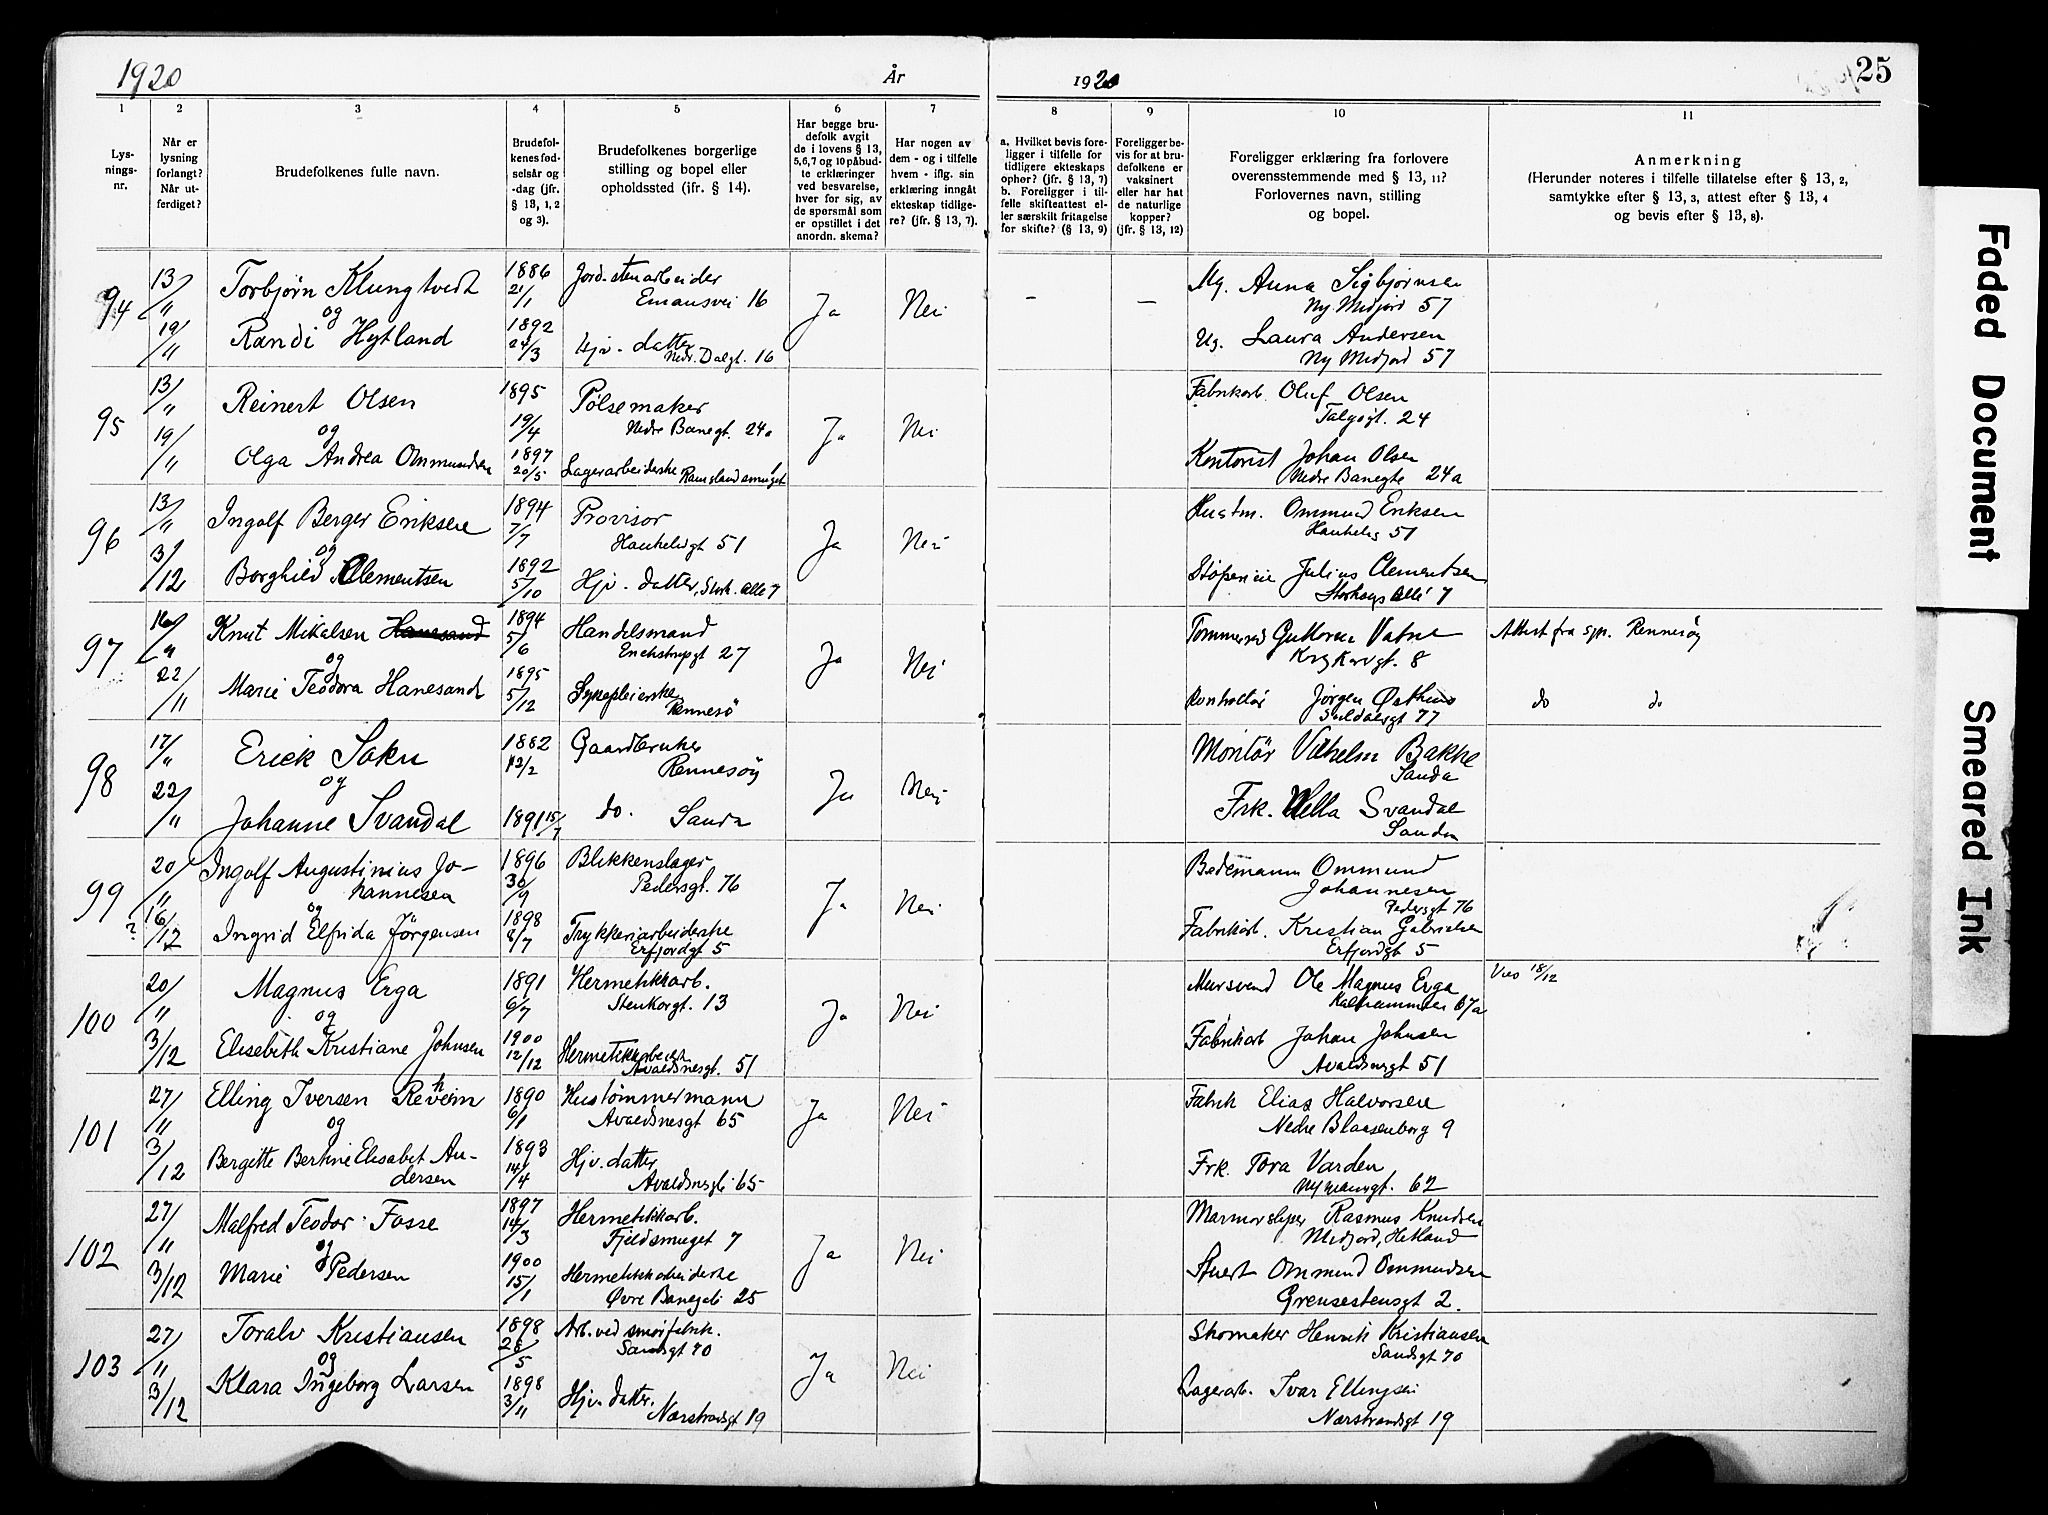 1920
År
1920
25
1
2
3
4
5
6
7
8
9
10
11
Lys-
nings-
nr.
Når er
lysning
forlangt?
Når ut-
ferdiget?
Brudefolkenes fulle navn.
Brudefol-
kenes fød-
selsår og
-dag (jfr.
§ 13, 1, 2
og 3).
Brudefolkenes borgerlige
stilling og bopel eller
opholdssted (jfr. § 14).
Har begge bru-
defolk avgit
de i lovens § 13,
5, 6, 7 og 10 påbud-
te erklæringer
ved besvarelse,
hver for sig, av
de spørsmål som
er opstillet i det
anordn. skema?
Har nogen av
dem - og i tilfelle
hvem - iflg. sin
erklæring inngått
ekteskap tidlige-
re? (jfr. § 13, 7).
a. Hvilket bevis fore-
ligger i tilfelle for
tidligere ekteskaps
ophør? (jfr. § 13, 7)
b. Foreligger i til-
felle skifteattest el-
ler særskilt fritagelse
for skifte? (§ 13, 9)
Foreligger be-
vis for at bru-
defolkene er
vaksinert
eller har hat
de naturlige
kopper?
(jfr. § 13, 12)
Foreligger erklæring fra forlovere
overensstemmende med § 13, 11?
Forlovernes navn, stilling
og bopel.
Anmerkning
(Herunder noteres i tilfelle tillatelse efter § 13, 2,
samtykke efter § 13, 3, attest efter § 13, 4
og bevis efter § 13, 8).
94
13/11 19/11
Torbjørn Klungtvedt
og
Randi Hytland
1886 21/1
1892 24/3
Jord- stenarbeider
Emausvei 16
Hjv. datter
Nedr. Dalgt. 16
Ja Nei - -
Ug. Anna Sigbjørnsen
Ny Midjord 57
Ug. Laura Andersen
Ny Midjord 57
95
13/11 19/11
Reinert Olsen
og
Olga Andrea Ommundsen
1895 19/4
1897 20/5
Pølsemaker
Nedre Banegt. 24a
Lagerarbeiderske Ramslandsmuget
Ja Nei
Fabrikarb. Oluf Olsen
Talgøgt. 24
Kontorist Johan Olsen
Nedre Banegte 24a
96
13/11 3/12
Ingolf Berger Eriksen
og
Borghild Clementsen
1894 7/7
1892 5/10
Provisor
Haukeligt 51
Hjv. datter, Stork. Alle 7
Ja Nei
Hustm. Ommund Eriksen
Haukelig 51
Støperieie Julius Clementsen
Storhaugs Allé 7
97
16/11 22/11
Knut Mikalsen Hanesand
og
Marie Teodora Hanesand
1894 5/6
1895 5/12
Handelsmand
Erichstrupgt 27
Sykepleierske
Rennesø
Ja Nei
Tømmermd Guttorm Vatne
8
Kontrollør Jørgen Østhus
Suldalsgt 77
Attest fra spr. Rennesøy
do do
98
17/11 22/11
Erick Soku
og
Johanne Svandal
1882 12/2
1891 15/7
Gaardbruker
Rennesøy
do. Sauda
Ja Nei
Montør Vilhelm Bakke
Sauda
Frk. Hella Svandal
Sauda
99
20/11 16/12
Ingolf Augustinius Jo-
hannesen
og
Ingrid Elfrida Jørgensen
1896 30/9
1898 2/7
Blikkenslager
Pedersgt. 76
Trykkeriarbeiderske
Erfjordgt 5
Ja Nei
Bedemann Ommund
Johannesen
Pedersgt 76
Fabrikarb. Kristian Gabrielsen
Erfjordgt 5
100
20/11 3/12
Magnus Erga
og
Elisebeth Kristiane Johnsen
1891 6/7
1900 12/12
Hermetikkarb.
Stenkorgt. 13
Hermetikkarbeid
Avaldsnesgt. 51
Ja Nei
Mursvend Ole Magnus Erga
Kalhammer 67a
Fabrikarb Johan Johnsen
Avaldsnesgt 51
Vies 18/12
101
27/11 3/12
Elling Iversen Reveim
og
Bergitte Bertine Elisabet An-
dersen
1890 6/1
1893 14/4
Hustømmermann
Avaldsnesgt 65
Hjv. datter
Avaldsnesgt 65
Ja Nei
Fabrik Elias Halvorsen
Nedre Blaasenborg 9
Frk. Tora Varden
Nymansgt. 62
102
27/11 3/12
Malfred Teodor Fosse
og
Marie Pedersen
1897 14/3
1900 15/1
Hermetikkarb.
Fjeldsmuget 7
Hermetikkarbeiderske
Øvre Banegt 25
Ja Nei
Marmorsliper Rasmus Knudsen
Midjord, Hetland
Stuert Ommund Ommundsen
Grensestensgt 2.
103
27/11 3/12
Toralv Kristiansen
og
Klara Ingeborg Larsen
1898 28/5
1898 3/11
Arb. ved smørfabrik.
Sandsgt 70
Hjv. datter.
Nærstrandsgt 19
Ja Nei
Skomaker Henrik Kristiansen
Sandsgt 70
Lagerarb. Ivar Ellingsen
Nærstrandsgt 19
Faded Document
Smeared Ink